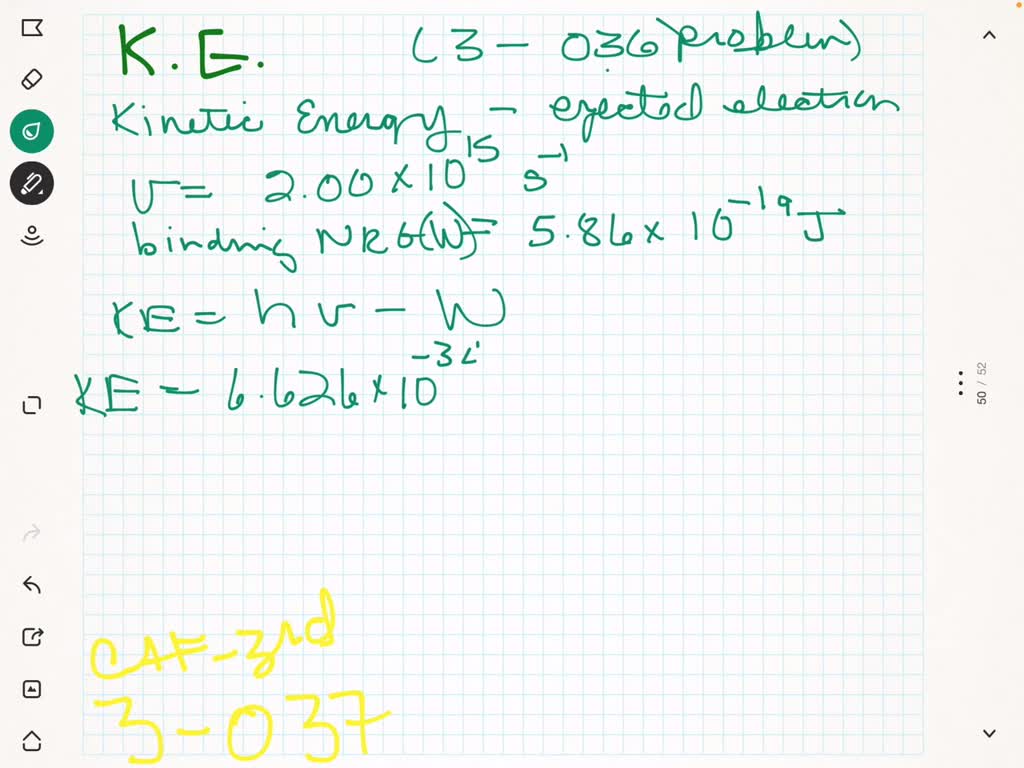 K.E. (3-036 problem)
Kinetic Energy - ejected electron
ν = 2.00 × 10¹⁵ s⁻¹
binding NRG(W) = 5.86 × 10⁻¹⁹ J
KE = hν - W
KE = 6.626 × 10⁻³⁴
50 / 52
CAF-3rd
3-037